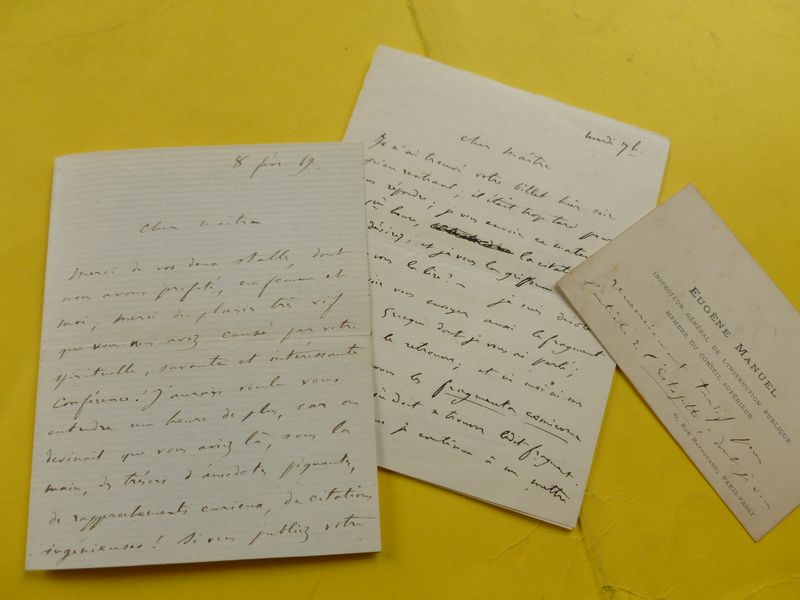 8 fév. 69
Cher maître
Merci de vos deux stalles, dont
nous avons profité, ma femme et
moi ; merci du plaisir très vif
que vous nous avez causé par votre
spirituelle, savante et intéressante
Conférence ! J'aurais voulu vous
entendre une heure de plus, car on
devinait que vous aviez là, sous la
main, des trésors d'anecdotes piquantes,
de rapprochements curieux, de citations
ingénieuses ! Si vous publiez votre
mardi 7 h.
Cher maître
Je n'ai trouvé votre billet hier soir
qu'en rentrant ; il était trop tard pour
répondre ; je vous envoie ce matin
heure, la citation
désirez, et je vous la griffonne
vous la lire ? – je suis désolé
vous envoyer aussi le fragment
Grecque dont je vous ai parlé ;
le retrouver ; et ici
vous les fragmenta comicorum
où doit se trouver ledit fragment.
je continue à me mettre
EUGÈNE MANUEL
INSPECTEUR GÉNÉRAL DE L'INSTRUCTION PUBLIQUE
MEMBRE DU CONSEIL SUPÉRIEUR
11, RUE RAYNOUARD, PARIS-PASSY
remerciement tardif pour
l'article de l'Estafette, dont je vous